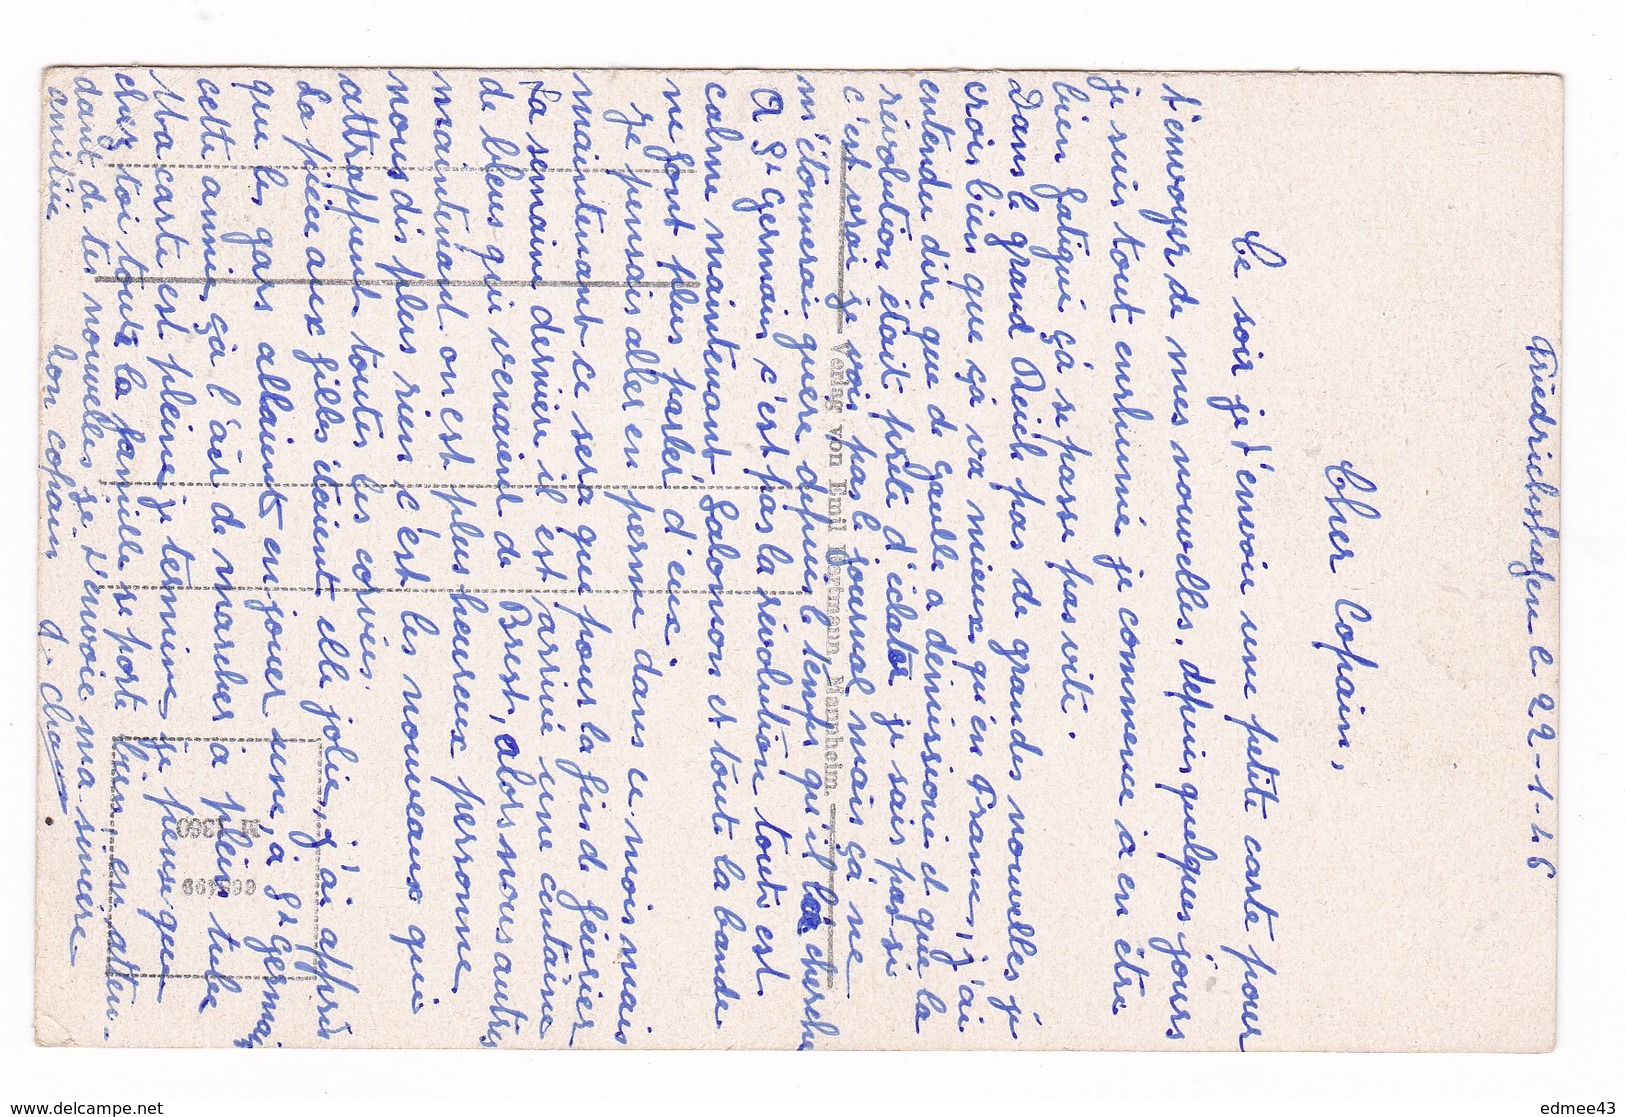 Friedrichshafen le 22-1-46
Cher Copain,
Ce soir je t'envoie une petite carte pour
t'envoyer de mes nouvelles, depuis quelques jours
je suis tout enrhumé je commence a en être
bien fatigué ça se passe pas vite.
Dans le grand Rueil pas de grandes nouvelles je
crois bien que ça va mieux qu'en France, j'ai
entendu dire que de Gaulle a démissioné et que la
révolution était prête d'éclater je sais pas si
c'est vrai je vois pas le journal mais ça ne
m'étonnerai guère depuis le temps qu'il la cherche
A St Germain c'est pas la révolution tout est
calme maintenant Salomon et toute la bande
ne font plus parler d'eux.
Je pensais aller en perme dans ce mois mais
maintenant ce sera que pour la fin de février
La semaine dernière il est arrivé une centaine
de bleus qui venaient de Brest, alors nous autres
maintenant on est plus heureux personne
nous dis plus rien c'est les nouveaux qui
attrappent toutes les corvées.
La pièce aux filles étaient elle jolie, j'ai appris
que les gars allaient en jouer une, à St Germain
cette année, ça l'air de marcher a plein tube
Ma carte est pleine je termine, je pense que
chez toi toute la famille se porte bien en atten-
dant de tes nouvelles je t'envoie ma sincère
amitiée
ton copain
Verlag von Emil Hartmann, Mannheim.